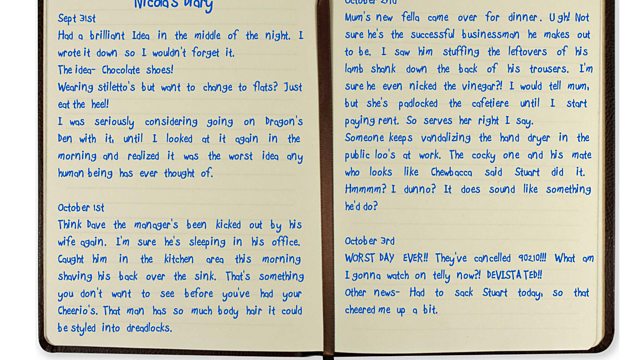 Nicola's Diary
Sept 31st
Had a brilliant Idea in the middle of the night. I
wrote it down so I wouldn't forget it.
The idea- Chocolate shoes!
Wearing stiletto's but want to change to flats? Just
eat the heel!
I was seriously considering going on Dragon's
Den with it, until I looked at it again in the
morning and realized it was the worst idea any
human being has ever thought of.
October 1st
Think Dave the manager's been kicked out by his
wife again. I'm sure he's sleeping in his office.
Caught him in the kitchen area this morning
shaving his back over the sink. That's something
you don't want to see before you've had your
Cheerio's. That man has so much body hair it could
be styled into dreadlocks.
October 2nd
Mum's new fella came over for dinner. Ugh! Not
sure he's the successful businessman he makes out
to be. I saw him stuffing the leftovers of his
lamb shank down the back of his trousers. I'm
sure he even nicked the vinegar?! I would tell mum,
but she's padlocked the cafetiere until I start
paying rent. So serves her right I say.
Someone keeps vandalizing the hand dryer in the
public loo's at work. The cocky one and his mate
who looks like Chewbacca said Stuart did it.
Hmmmm? I dunno? It does sound like something
he'd do?
October 3rd
WORST DAY EVER!! They've cancelled 90210!!! What am
I gonna watch on telly now?! DEVISTATED!!
Other news- Had to sack Stuart today, so that
cheered me up a bit.